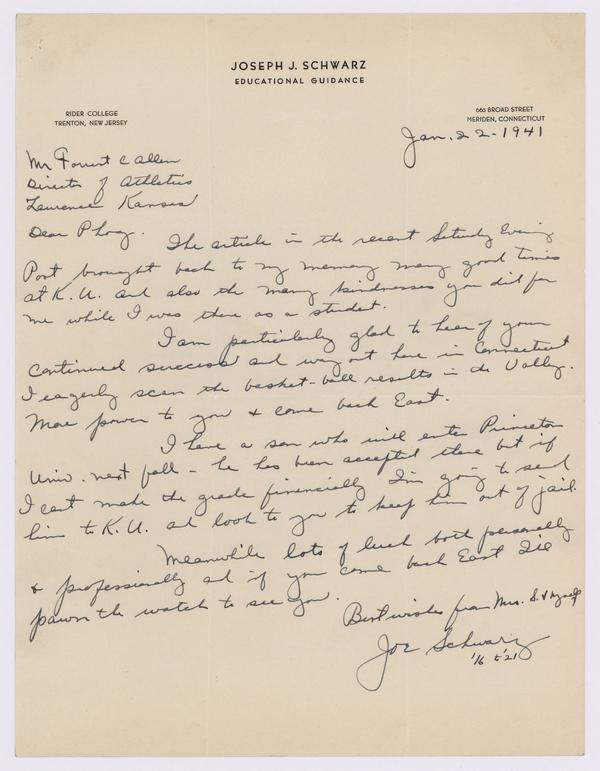 JOSEPH J. SCHWARZ
EDUCATIONAL GUIDANCE
RIDER COLLEGE
TRENTON, NEW JERSEY
665 BROAD STREET
MERIDEN, CONNECTICUT
Jan. 22-1941
Mr Forrest C Allen
Director of Athletics
Lawrence Kansas
Dear Phog.
The article in the recent Saturday Evening
Post brought back to my memory many good times
at K.U. and also the many kindnesses you did for
me while I was there as a student.
I am particularly glad to hear of your
continued success and way out here in Connecticut
I eagerly scan the basket-ball results in the Valley.
More power to you & come back East.
I have a son who will enter Princeton
Univ. next fall - he has been accepted there but if
I can't make the grade financially I'm going to send
him to K.U. and look to you to keep him out of jail.
Meanwhile lots of luck both personally
& professionally and if you come back East I'll
pawn the watch to see you.
Best wishes from Mrs. S. & myself
Joe Schwarz
'16 to '21